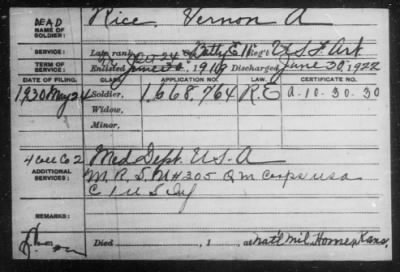 DEAD
NAME OF SOLDIER: Rice Vernon A
SERVICE: Late rank, Batty E 11 Reg't U S F Art
TERM OF SERVICE: Enlisted June 1919 Discharged June 30, 1922
DATE OF FILING. CLASS. APPLICATION NO. LAW. CERTIFICATE NO.
1930 May 24 Soldier, 1,668,764 R.E A-10-30-30
Widow,
Minor,
Med Dept. U S A
ADDITIONAL SERVICES: M. R. S. #205 Q m Corps usa
C 1 U S Inf
REMARKS:
Died , 1 , at Nat'l Mil. Home, Kans.